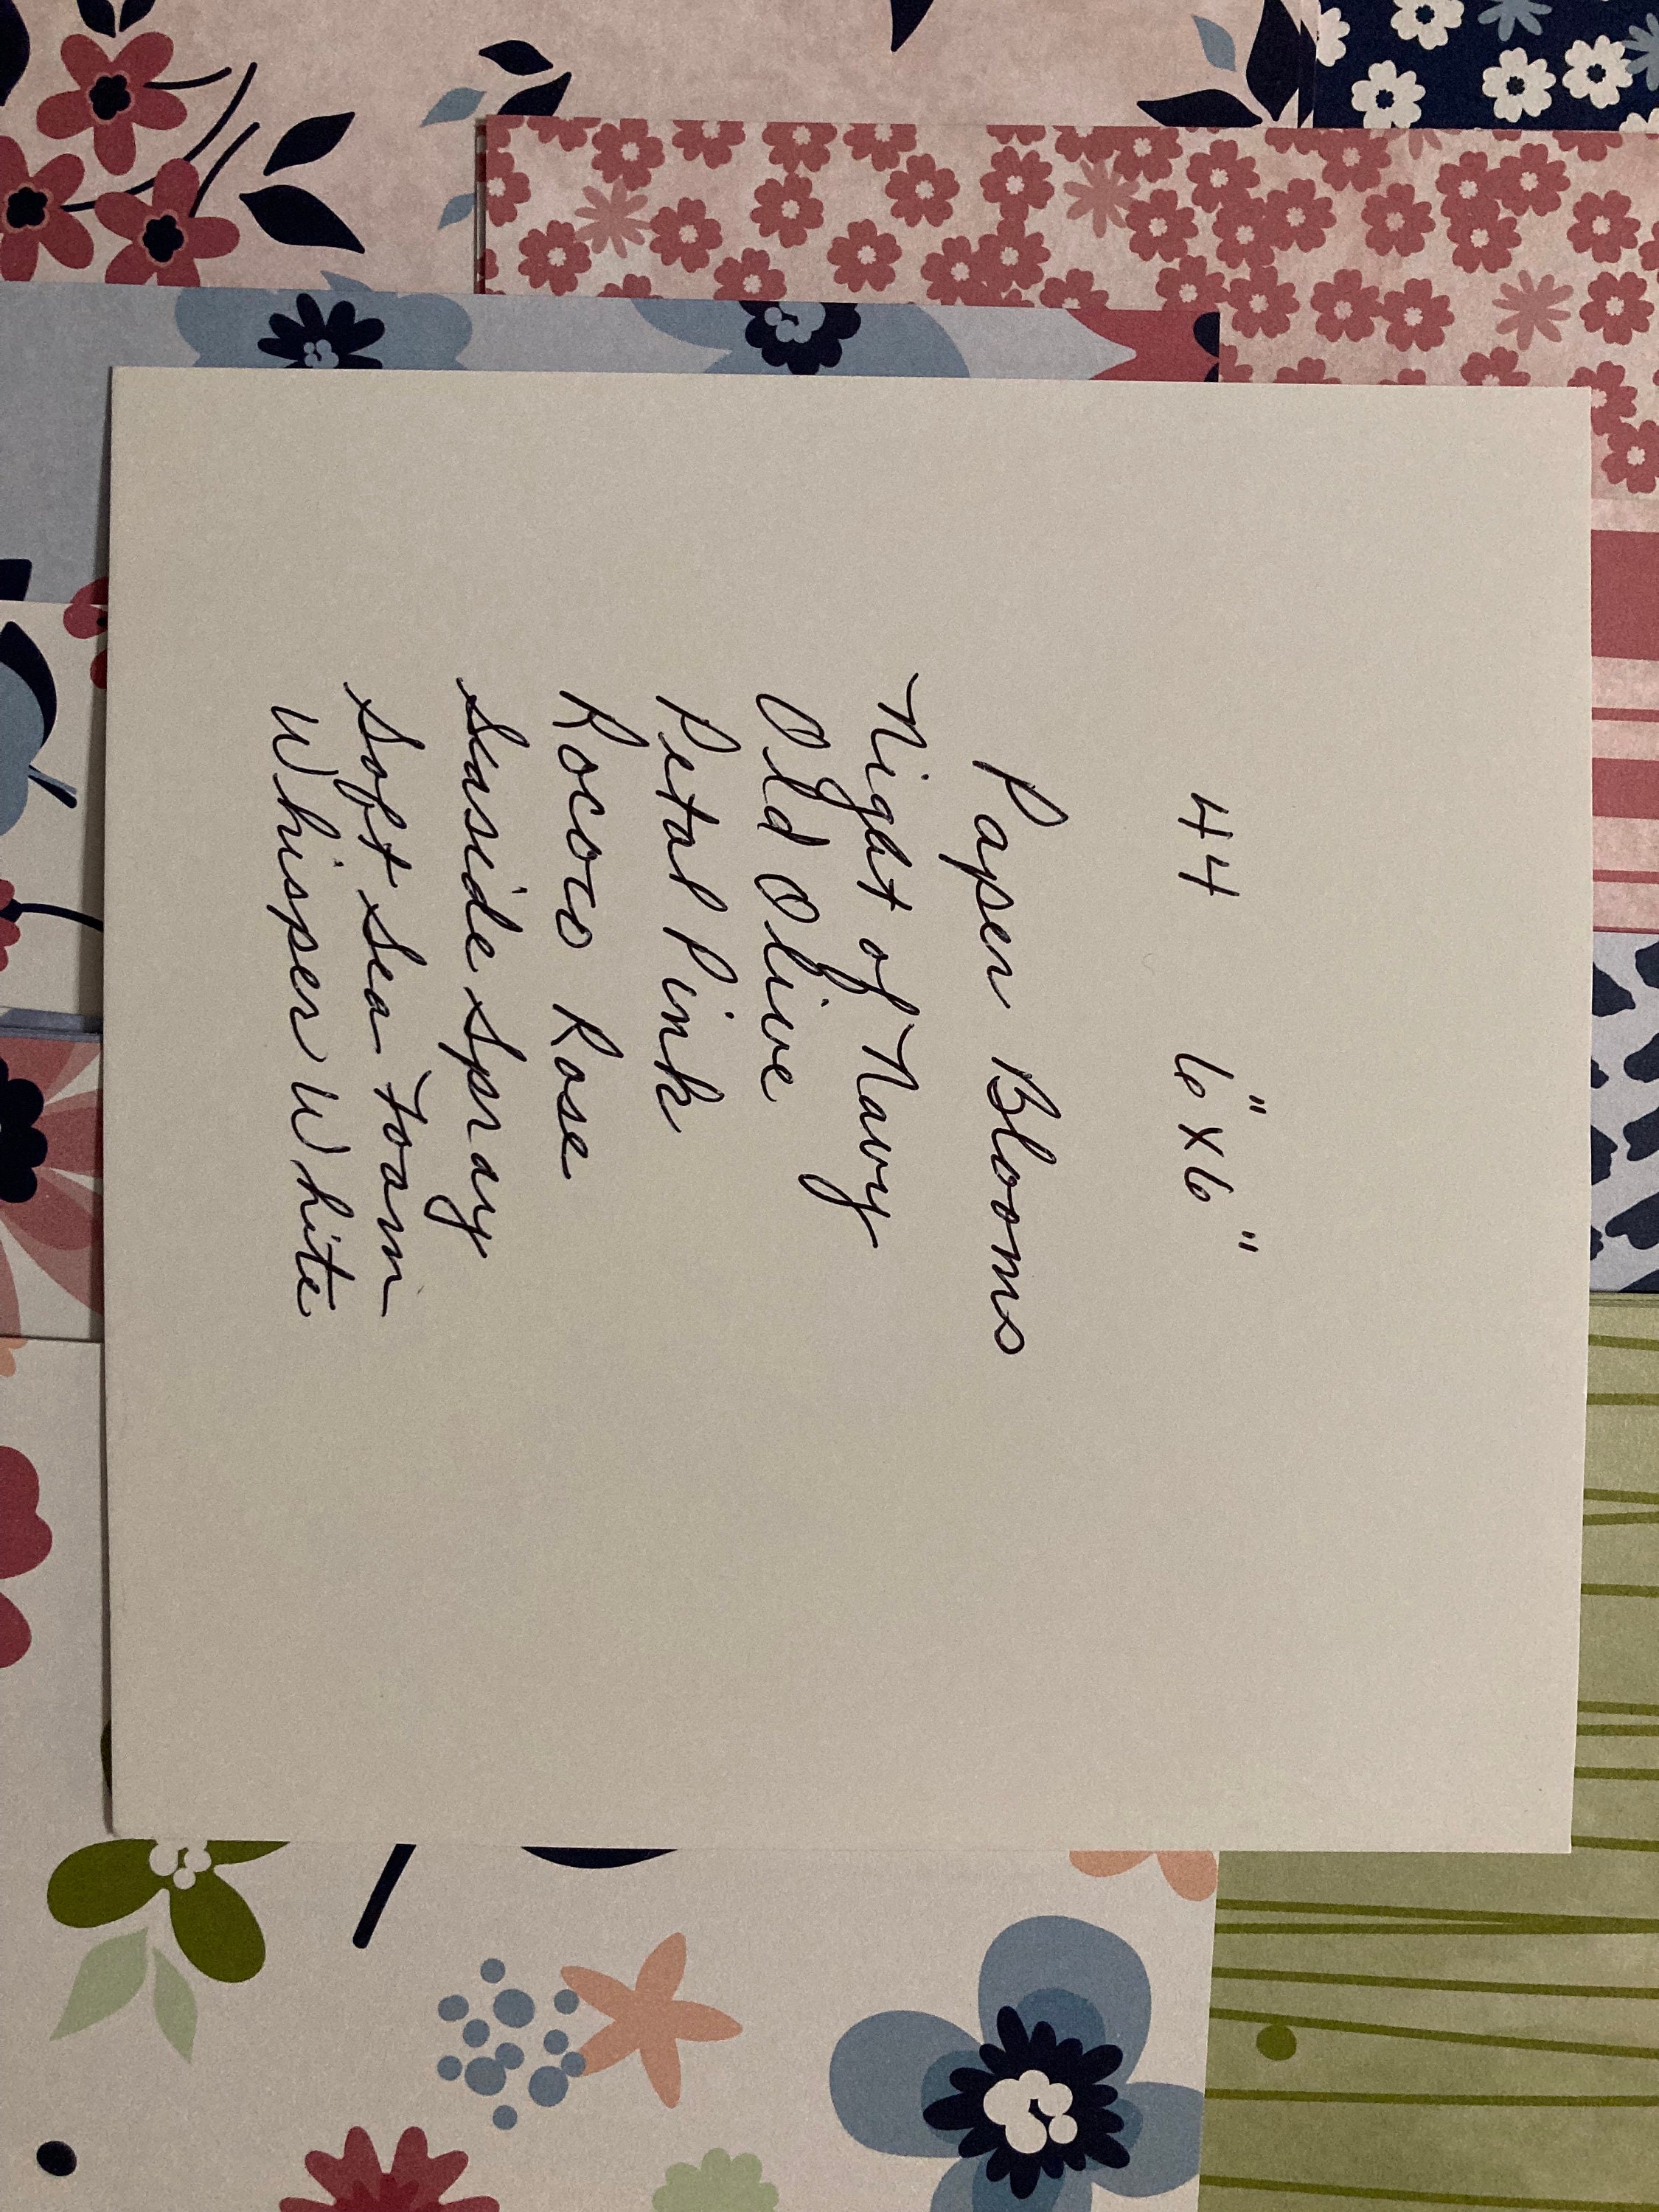 44 6" x 6"
Paper Blooms
Night of Navy
Old Olive
Petal Pink
Rococo Rose
Seaside Spray
Soft Sea Foam
Whisper White